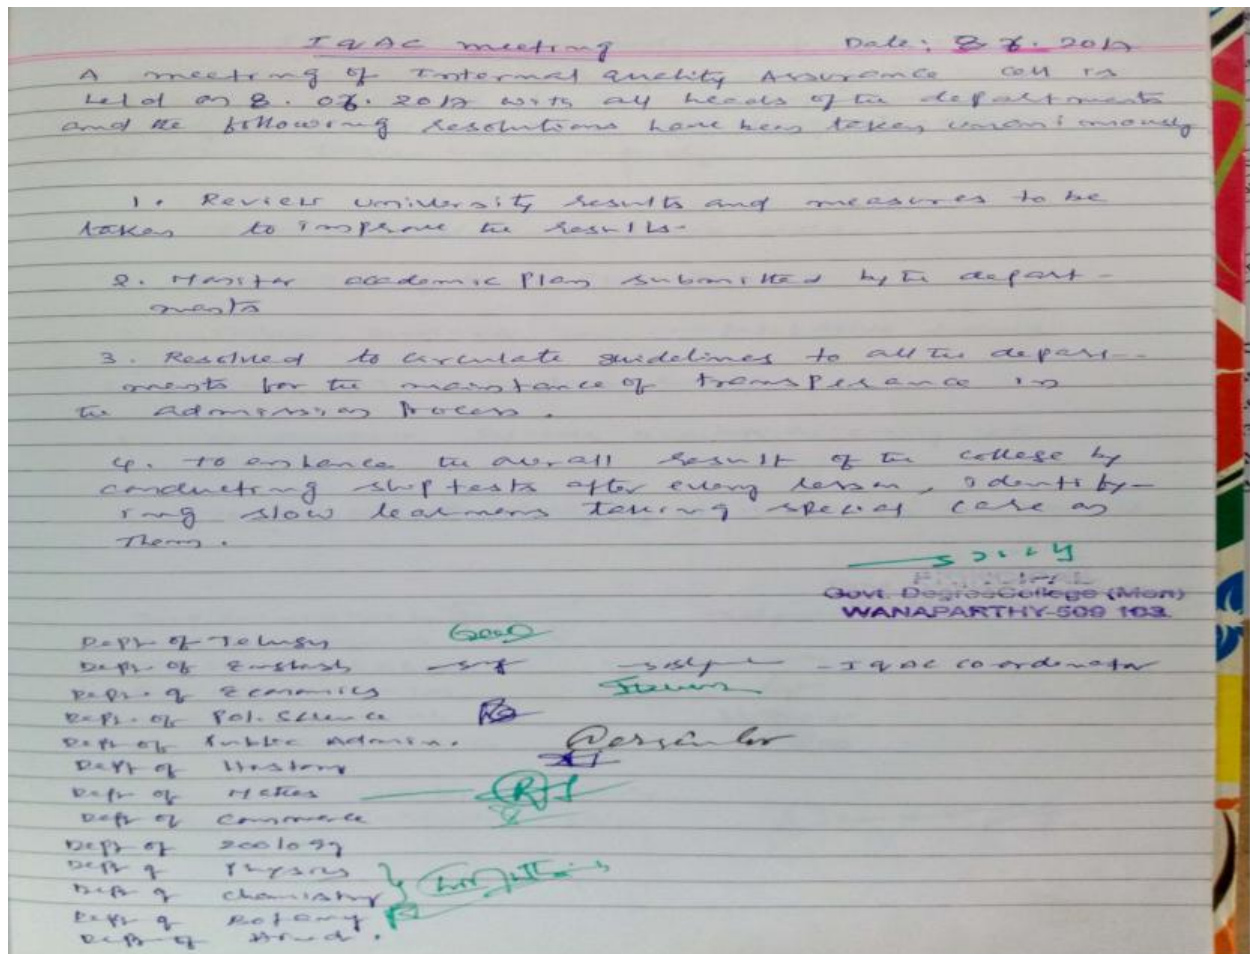 IQAC meeting Date: 8 7. 2017
A meeting of Internal Quality Assurance cell is
held on 8. 07. 2017 with all heads of the departments
and the following resolutions have been taken unanimously
1. Review university results and measures to be
taken to improve the results.
2. Monitor academic Plan submitted by the depart-
ments
3. Resolved to circulate guidelines to all the depart-
ments for the maintance of transperance in
the admission Process.
4. To enhance the overall result of the college by
conducting slip tests after every lesson, identify-
ing slow learners taking special care on
Them.
PRINCIPAL
Govt. Degree College (Men)
WANAPARTHY-509 103.
Dept of Telugu
Dept of English - IQAC coordinator
Dept. of Economics
Dept. of Pol. Science
Dept of Public Admin.
Dept of History
Dept of Maths
Dept of Commerce
Dept of Zoology
Dept of Physics
Dept of Chemistry
Dept of Botany
Dept of